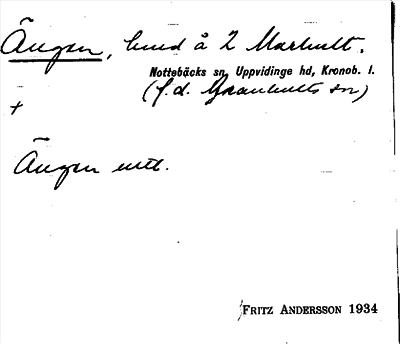 Ängen, hmd å 2 Marhult.
Nottebäcks sn, Uppvidinge hd, Kronob. l.
(f.d. Granhults sn)
+
Ängen utt.
FRITZ ANDERSSON 1934